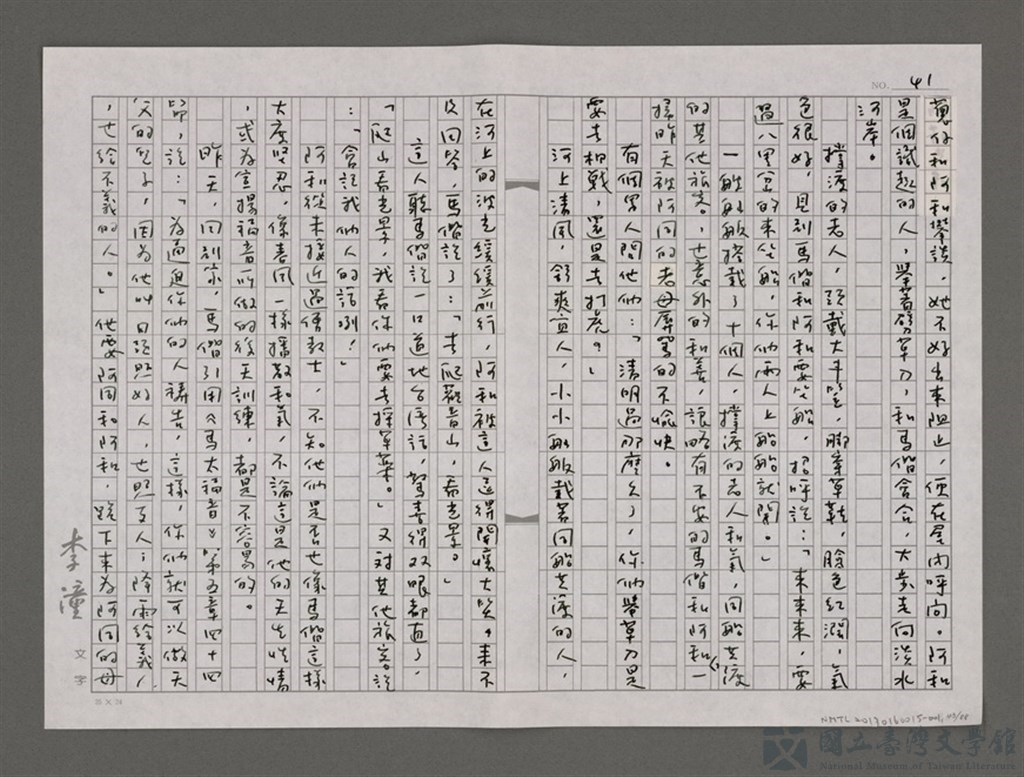 NO. 41
蔥仔和阿和攀談，她不好出來阻止，便在屋內呼問。阿和
是個識趣的人，舉著劈草刀，和馬偕會合，大步走向淡水
河岸。
撐渡的老人，頭戴大斗笠，腳穿草鞋，臉色紅潤，氣
色很好，見到馬偕和阿和要坐船，招呼說：「來來來，要
過八里坌的來坐船，你們兩人上船船就開。」
一艘舢舨搭載了十個人，撐渡的老人和氣，同船共渡
的其他旅客，也意外的和善，讓略有不安的馬偕和阿和，一
掃昨天被阿同的老母辱罵的不愉快。
有個男人問他們：「清明過那麼久了，你們舉草刀是
要去相戰，還是去打虎？」
河上清風，舒爽宜人，小小舢舨載著同船共渡的人，
在河上的波光緩緩前行，阿和被這人逗得開懷大笑，來不
及回答，馬偕說了：「去爬觀音山，看光景。」
這人聽馬偕說一口道地台灣話，驚喜得双眼都直了，
「爬山看光景，我看你們要去採草藥。」又對其他旅客說
：「會說我們人的話咧！」
阿和從未接近過傳教士，不知他們是否也像馬偕這樣
大度堅忍，像春風一樣播散和氣，不論這是他的天生性情
，或為宣揚福音所做的後天訓練，都是不容易的。
昨天，回到家，馬偕引用《馬太福音》第五章四十四
節，說：「為逼迫你們的人禱告，這樣，你們就可以做天
父的兒子，因為他叫日頭照好人，也照歹人；降雨給義人
，也給不義的人。」他要阿同和阿和，跪下來為阿同的母
李潼
文字
25 X 24
國立臺灣文學館
National Museum of Taiwan Literature